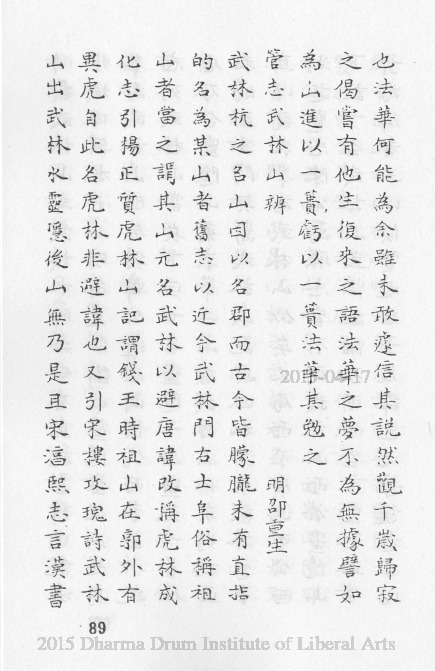 也法華何能為余雖未敢遽信其說然觀千歲歸寂
之偈嘗有他生復來之語法華之夢不為無據譬如
為山進以一蕢虧以一蕢法華其勉之　明邵重生
管志武林山辨
武林杭之名山因以名郡而古今皆朦朧未有直指
的名為某山者舊志以近今武林門右士阜俗稱祖
山者當之謂其山元名武林以避唐諱改稱虎林成
化志引楊正質虎林山記謂錢王時祖山在郭外有
異虎自此名虎林非避諱也又引宋樓攻瑰詩武林
山出武林水靈隱後山無乃是且宋淳熙志言漢書
2015-04-17
89
2015 Dharma Drum Institute of Liberal Arts